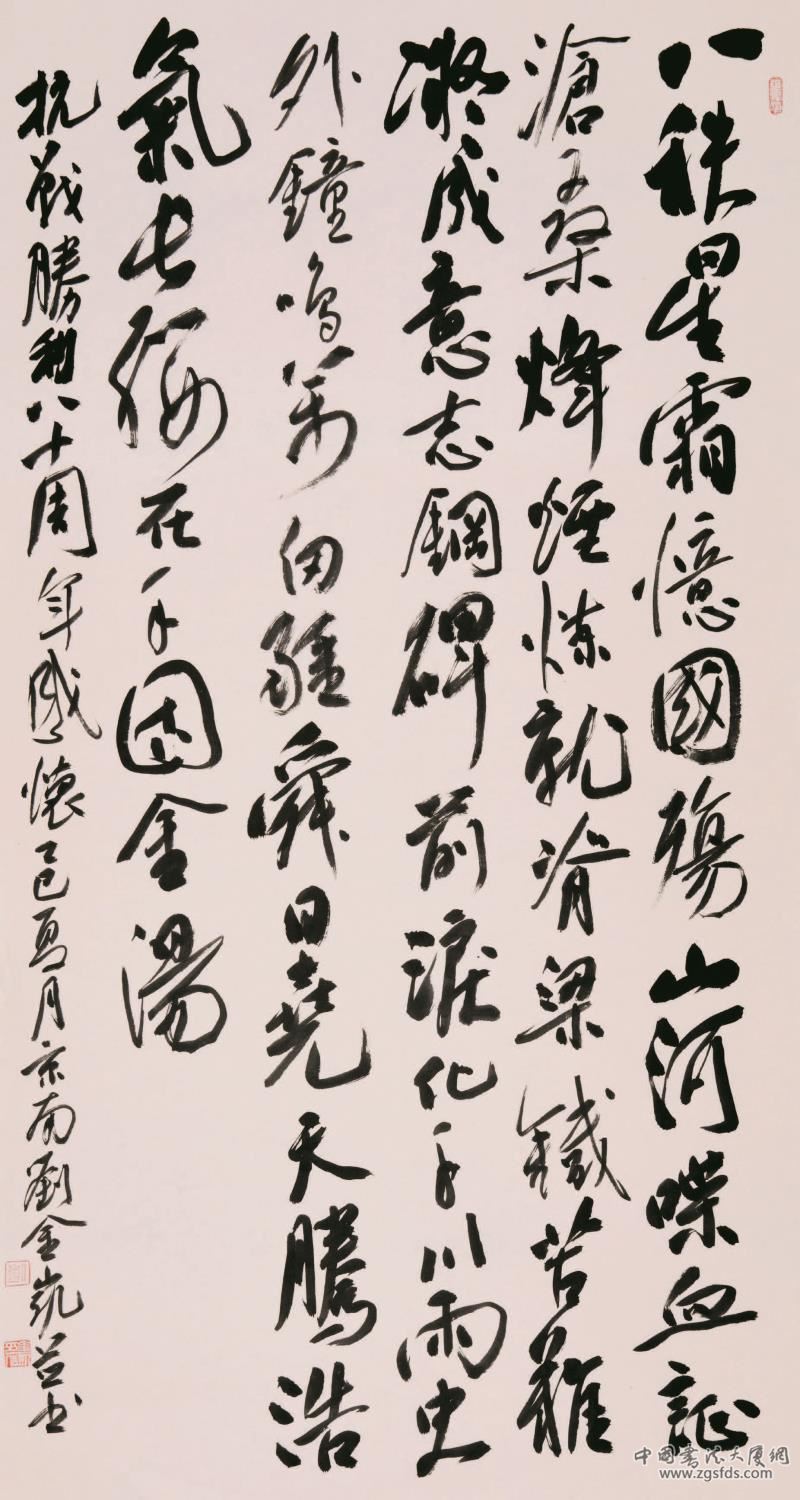 八秩星霜憶國殤山河喋血証
滄桑烽煙煉就脊梁鐵苦難
凝成意志鋼碑前淚化千川雨史
外鐘鳴萬疆舜日堯天騰浩
氣長纓在手固金湯
抗戰勝利八十周年感懷乙巳夏月京南劉金凱书
中国書法大厦網
www.zgsfds.com